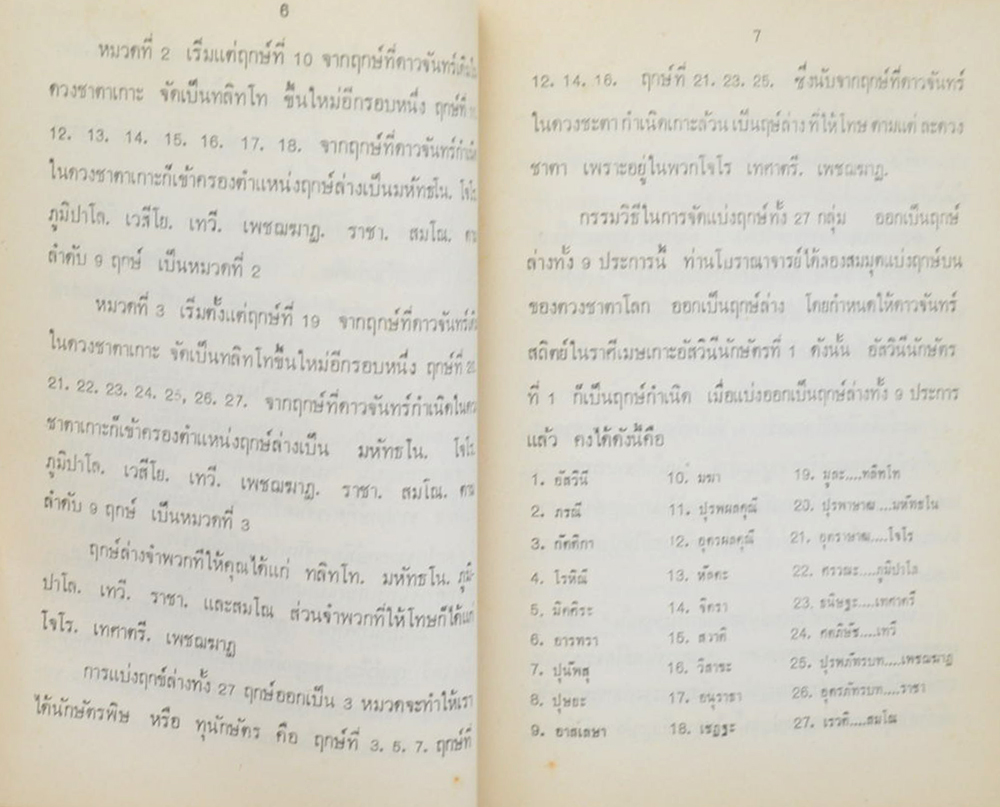 6
หมวดที่ 2 เริ่มแต่ฤกษ์ที่ 10 จากฤกษ์ที่ดาวจันทร์เดิมใน
ดวงชาตาเกาะ จัดเป็นทลิทโท ขึ้นใหม่อีกรอบหนึ่ง ฤกษ์ที่
12. 13. 14. 15. 16. 17. 18. จากฤกษ์ที่ดาวจันทร์กำเนิด
ในดวงชาตาเกาะก็เข้าครองตำแหน่งฤกษ์ล่างเป็นมหัทธโน. โจโร.
ภูมิปาโล. เวสิโย. เทวี. เพชฌฆาฏ. ราชา. สมโณ. ตาม
ลำดับ 9 ฤกษ์ เป็นหมวดที่ 2
หมวดที่ 3 เริ่มตั้งแต่ฤกษ์ที่ 19 จากฤกษ์ที่ดาวจันทร์เดิม
ในดวงชาตาเกาะ จัดเป็นทลิทโทขึ้นใหม่อีกรอบหนึ่ง ฤกษ์ที่ 20.
21. 22. 23. 24. 25, 26. 27. จากฤกษ์ที่ดาวจันทร์กำเนิดในดวง
ชาตาเกาะก็เข้าครองตำแหน่งฤกษ์ล่างเป็น มหัทธโน. โจโร.
ภูมิปาโล. เวสิโย. เทวี. เพชฌฆาฏ. ราชา. สมโณ. ตาม
ลำดับ 9 ฤกษ์ เป็นหมวดที่ 3
ฤกษ์ล่างจำพวกที่ให้คุณได้แก่ ทลิทโท. มหัทธโน. ภูมิ-
ปาโล. เทวี. ราชา. และสมโณ ส่วนจำพวกที่ให้โทษก็ได้แก่
โจโร. เทศาตรี. เพชฌฆาฏ
การแบ่งฤกษ์ล่างทั้ง 27 ฤกษ์ออกเป็น 3 หมวดจะทำให้เรา
ได้นักษัตรพิษ หรือ ทุนักษัตร คือ ฤกษ์ที่ 3. 5. 7. ฤกษ์ที่
7
12. 14. 16. ฤกษ์ที่ 21. 23. 25. ซึ่งนับจากฤกษ์ที่ดาวจันทร์
ในดวงชะตา กำเนิดเกาะล้วน เป็นฤษ์ล่าง ที่ให้โทษ ตามแต่ ละดวง
ชาตา เพราะอยู่ในพวกโจโร เทศาตรี. เพชฌฆาฏ.
กรรมวิธีในการจัดแบ่งฤกษ์ทั้ง 27 กลุ่ม ออกเป็นฤกษ์
ล่างทั้ง 9 ประการนี้ ท่านโบราณาจารย์ได้ลองสมมุตแบ่งฤกษ์บน
ของดวงชาตาโลก ออกเป็นฤกษ์ล่าง โดยกำหนดให้ดาวจันทร์
สถิตย์ในราศีเมษเกาะอัสวินีนักษัตรที่ 1 ดังนั้น อัสวินีนักษัตร
ที่ 1 ก็เป็นฤกษ์กำเนิด เมื่อแบ่งออกเป็นฤกษ์ล่างทั้ง 9 ประการ
แล้ว คงได้ดังนี้คือ
1. อัสวินี 10. มฆา 19. มูละ....ทลิทโท
2. ภรณี 11. ปุรพผลคุณี 20. ปุรพาษาฒ...มหัทธโน
3. กัตติกา 12. อุตรผลคุณี 21. อุตราษาฒ....โจโร
4. โรหิณี 13. หัสตะ 22. ศรวณะ....ภูมิปาโล
5. มิคศิระ 14. จิตรา 23. ธนิษฐะ....เทศาตรี
6. อารทรา 15. สวาติ 24. ศตภิษัช....เทวี
7. ปุนัพสุ 16. วิสาขะ 25. ปุรพภัทรบท....เพชฌฆาฏ
8. ปุษยะ 17. อนุราธา 26. อุตรภัทรบท....ราชา
9. อาสเลษา 18. เชฏฐะ 27. เรวดี....สมโณ